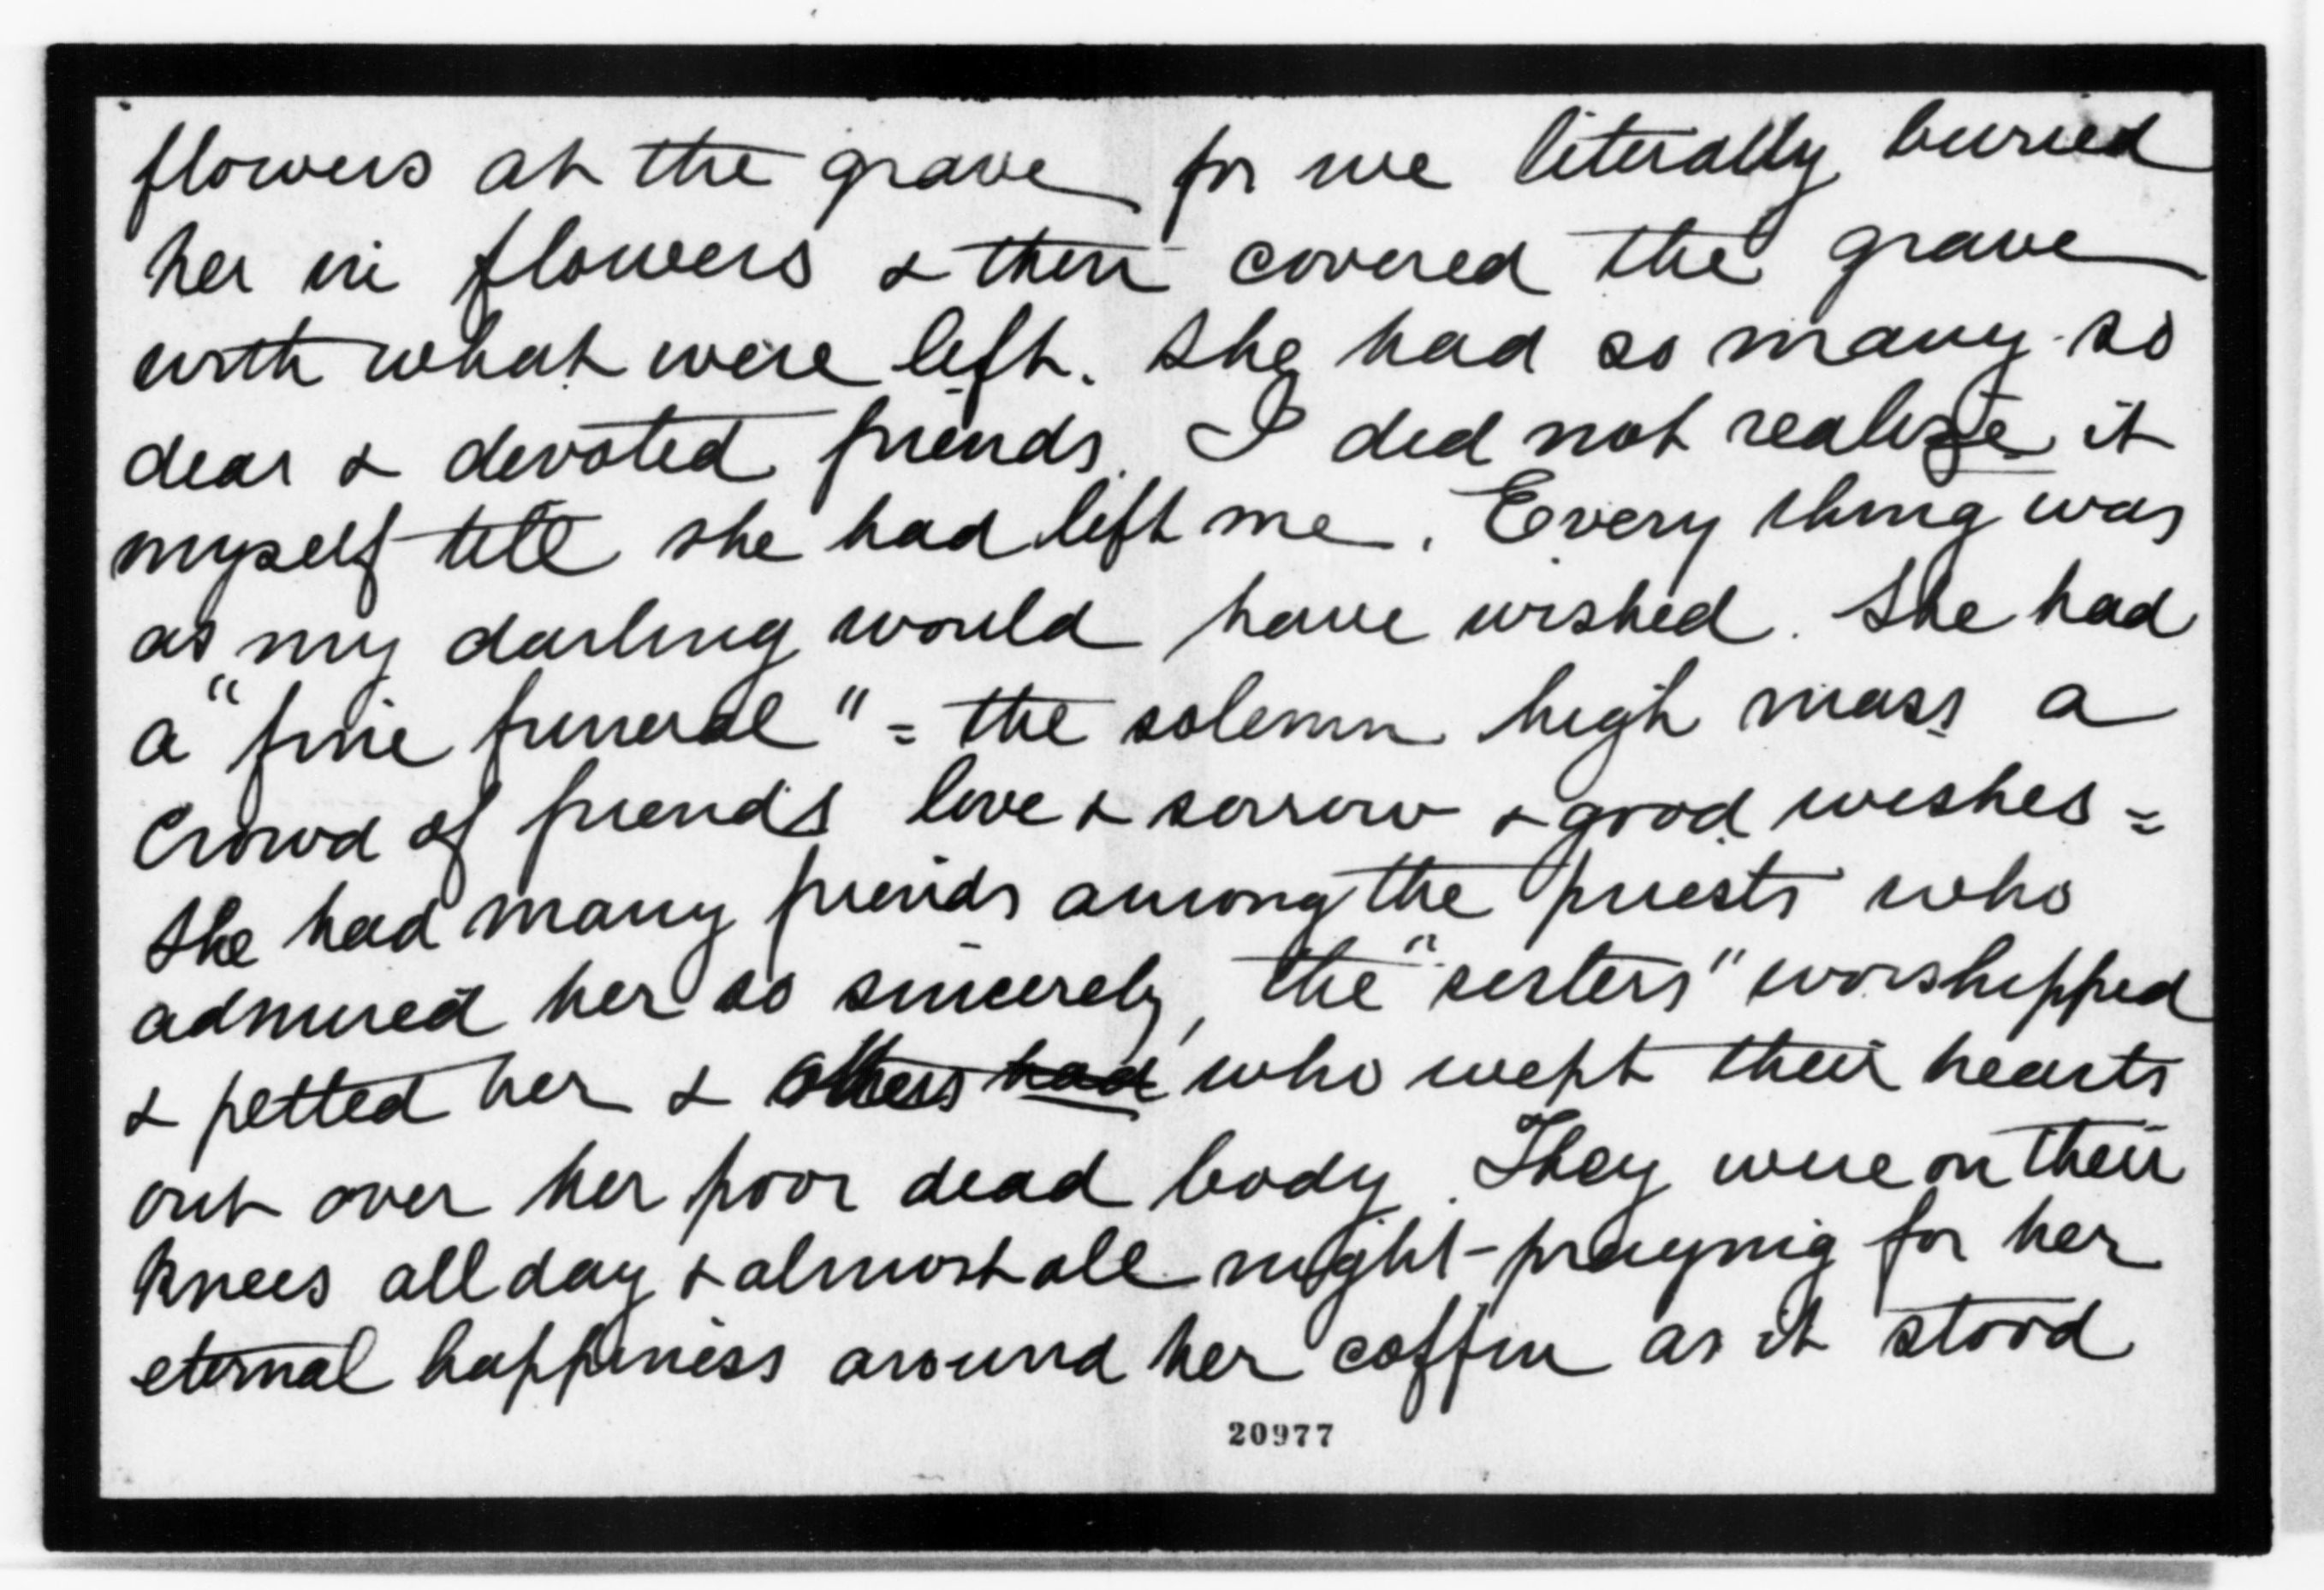 flowers at the grave for we literally buried
her in flowers & then covered the grave
with what were left. She had so many so
dear & devoted friends. I did not realize it
myself till she had left me. Every thing was
as my darling would have wished. She had
a "fine funeral" = the solemn high mass a
crowd of friends love & sorrow & good wishes =
She had many friends among the priests who
admired her so sincerely, the "sisters" worshipped
& petted her & others had who wept their hearts
out over her poor dead body. They were on their
knees all day & almost all night - praying for her
eternal happiness around her coffin as it stood
20977